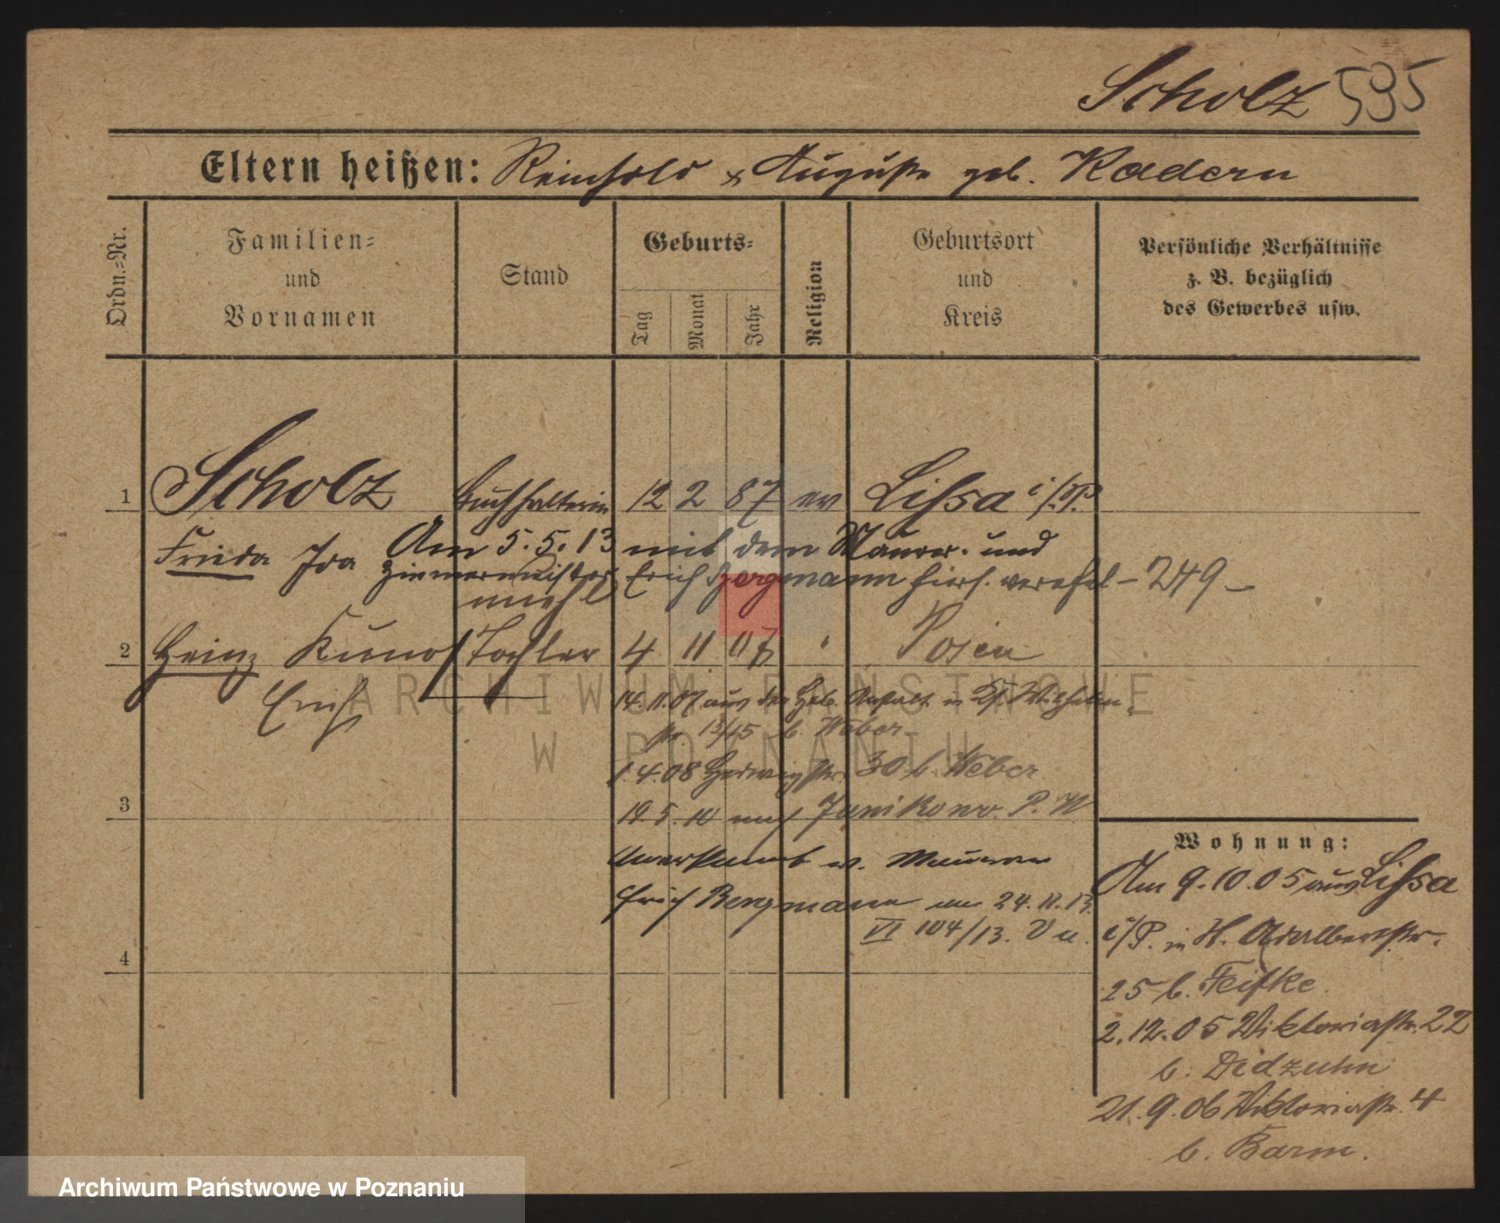 Scholz 595
Eltern heißen: Reinhold & Auguste geb. Kadern
Ordn.-Nr.
Familien-
und
Vornamen
Stand
Geburts-
Tag
Monat
Jahr
Religion
Geburtsort
und
Kreis
Persönliche Verhältnisse
z. B. bezüglich
des Gewerbes usw.
1 Scholz Buchhalterin 12 2 87 ev Lissa i/P.
Frieda Ida Am 5.5.13 mit dem Maurer- und
Zimmermeister Erich Bergmann hier verehel – 249 –
2 Heinz Kuno Tochter 4 11 07 " Posen
Erich
14.11.07 aus der Heb. Anstalt in
b. Weber
1.4.08 Hedwigstr. 30 b. Weber
19.5.10 nach Janikowo P. W
3
Anerkannt v. Maurer
Erich Bergmann am 24.11.13.
VI 104/13. V u.
4
Wohnung:
Am 9.10.05 aus Lissa
i/P. in H. Adalbertstr.
25 b. Feifke.
2.12.05 Viktoriastr. 22
b. Didzuhn
21.9.06 Viktoriastr. 4
b. Barm.
ARCHIWUM PAŃSTWOWE
W POZNANIU
Archiwum Państwowe w Poznaniu